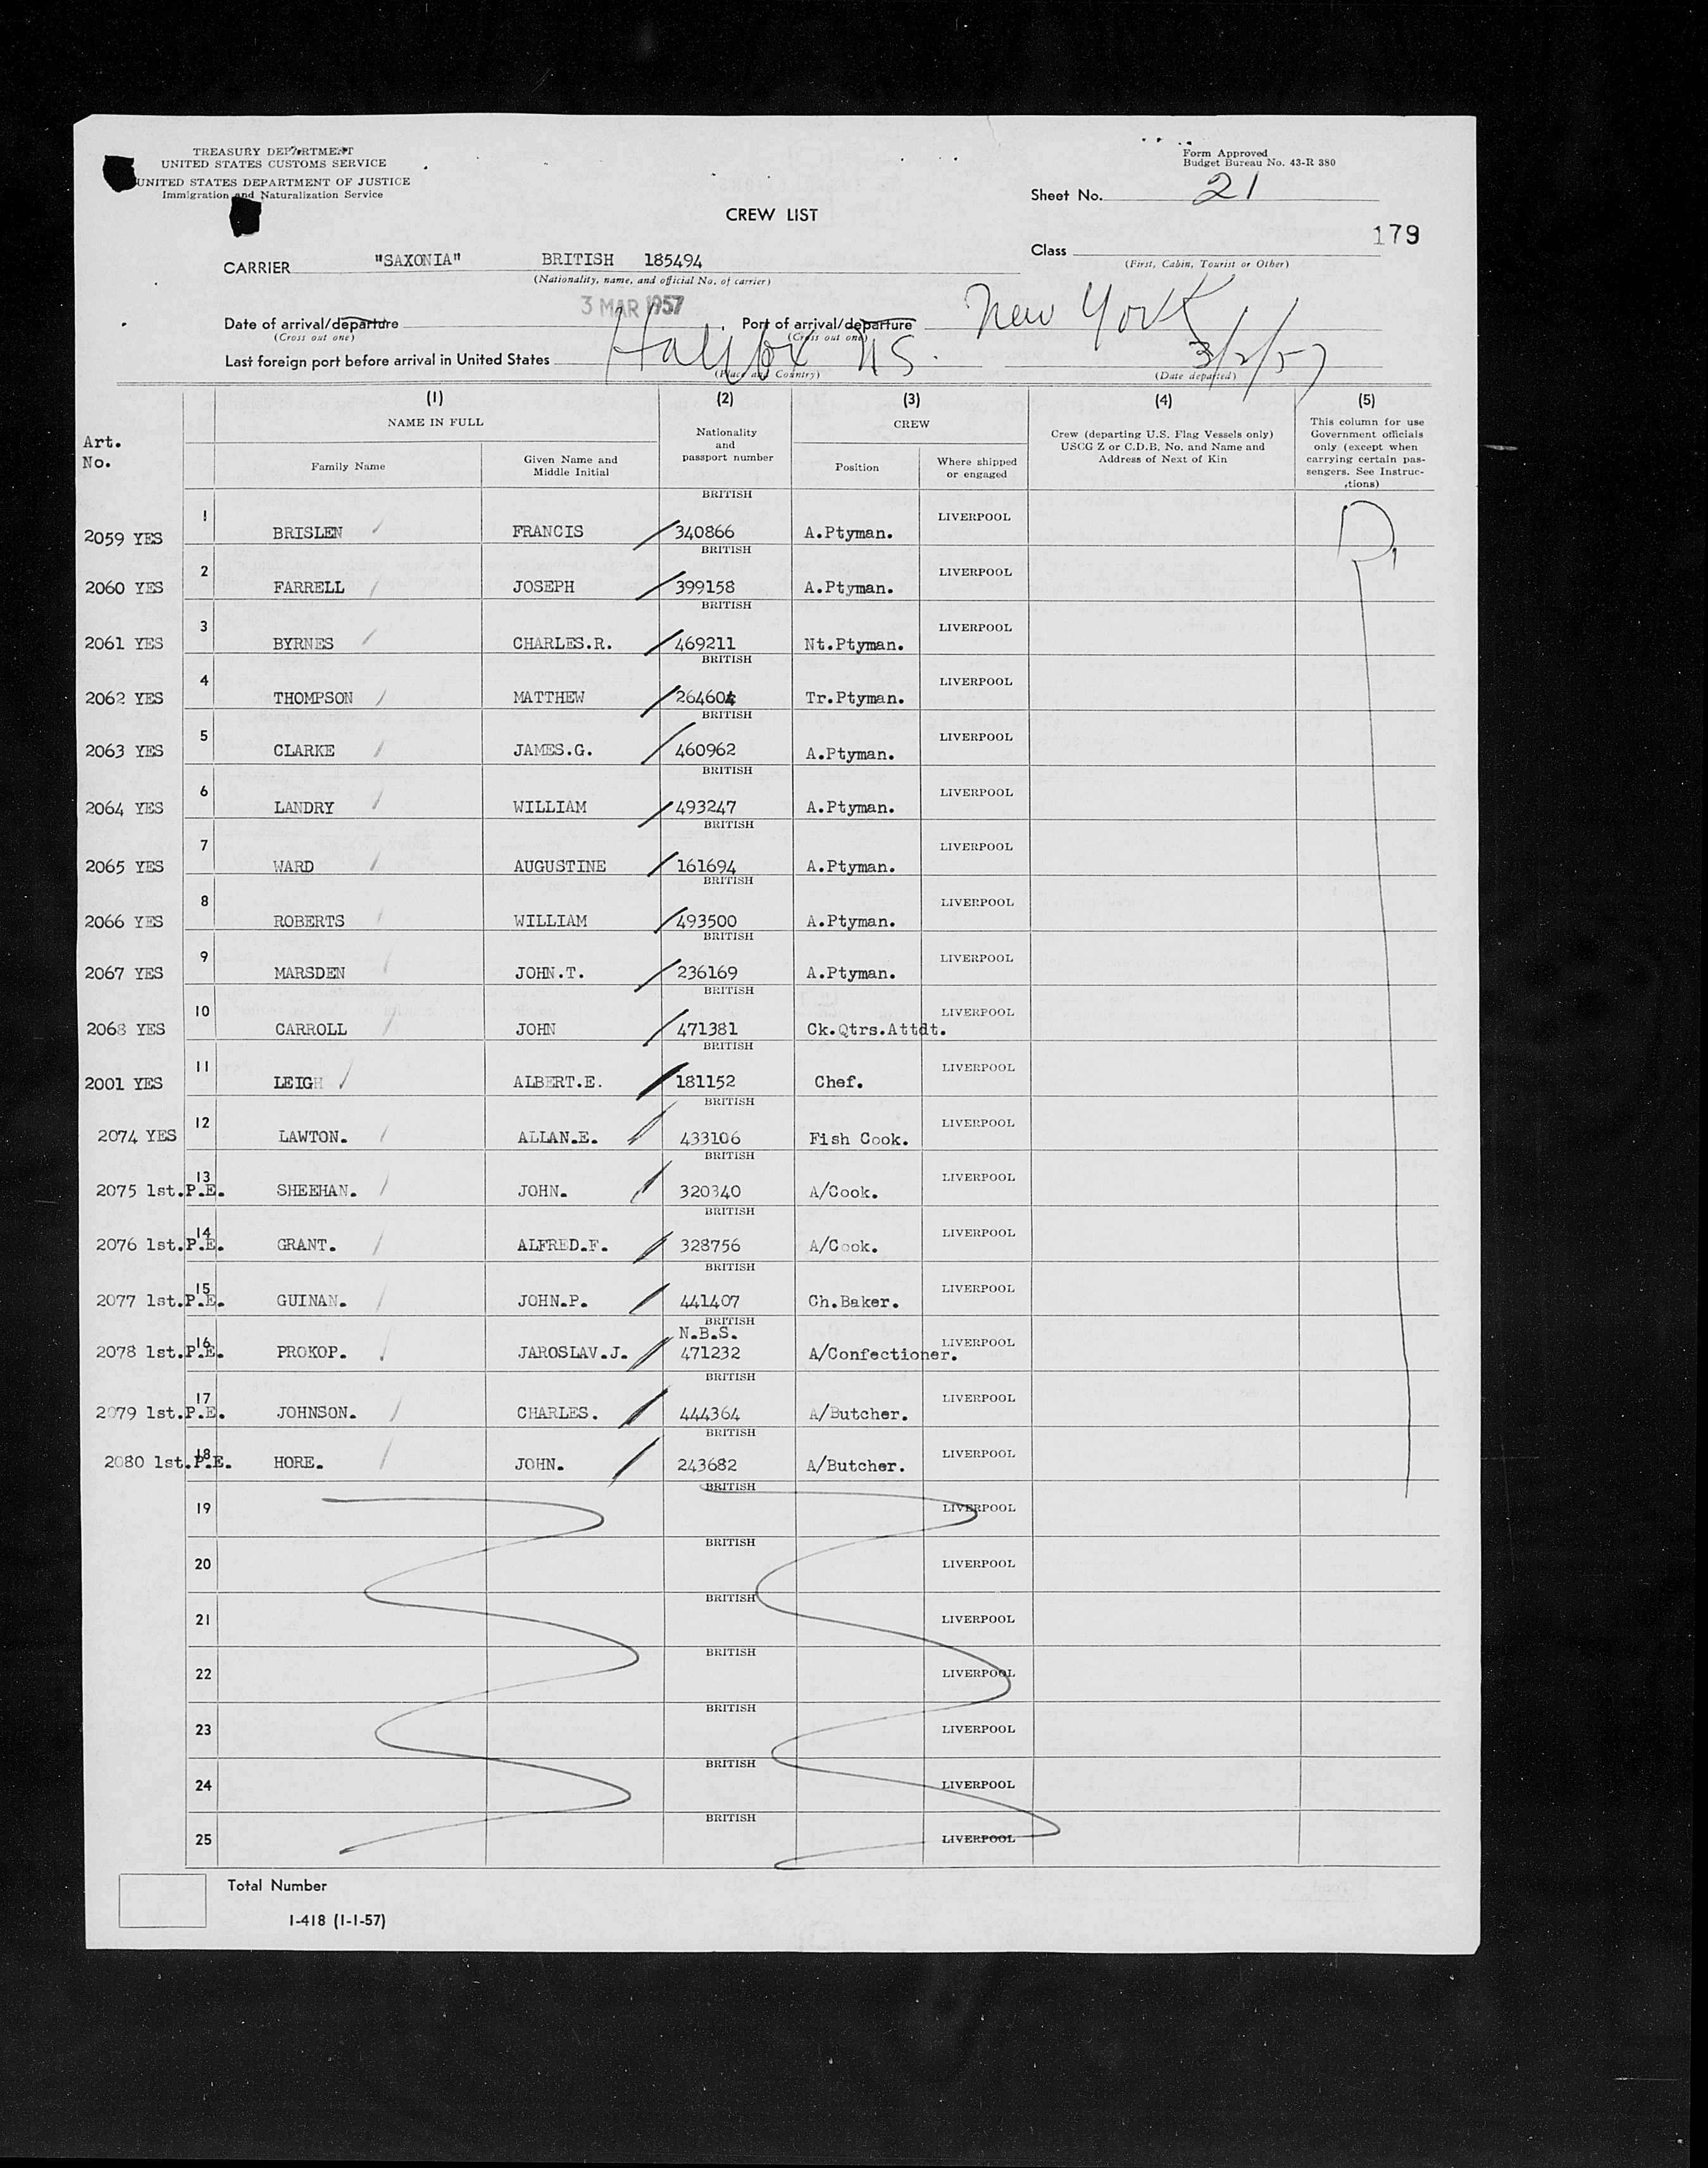 TREASURY DEPARTMENT
UNITED STATES CUSTOMS SERVICE
UNITED STATES DEPARTMENT OF JUSTICE
Immigration and Naturalization Service
Form Approved
Budget Bureau No. 43-R 380
Sheet No. 21
CREW LIST
179
CARRIER "SAXONIA" BRITISH 185494
(Nationality, name, and official No. of carrier)
Class
(First, Cabin, Tourist or Other)
3 MAR 1957
Date of arrival/departure Port of arrival/departure New York
(Cross out one) (Cross out one)
Last foreign port before arrival in United States Halifax NS. 3/2/57
(Place and Country) (Date departed)
Art. No.
(1) (2) (3) (4) (5)
NAME IN FULL
Family Name
Given Name and Middle Initial
Nationality and passport number
CREW
Position
Where shipped or engaged
Crew (departing U.S. Flag Vessels only) USCG Z or C.D.B. No. and Name and Address of Next of Kin
This column for use Government officials only (except when carrying certain passengers. See Instructions)
2059 YES 1 BRISLEN FRANCIS BRITISH 340866 A.Ptyman. LIVERPOOL D
2060 YES 2 FARRELL JOSEPH BRITISH 399158 A.Ptyman. LIVERPOOL
2061 YES 3 BYRNES CHARLES.R. BRITISH 469211 Nt.Ptyman. LIVERPOOL
2062 YES 4 THOMPSON MATTHEW BRITISH 264604 Tr.Ptyman. LIVERPOOL
2063 YES 5 CLARKE JAMES.G. BRITISH 460962 A.Ptyman. LIVERPOOL
2064 YES 6 LANDRY WILLIAM BRITISH 493247 A.Ptyman. LIVERPOOL
2065 YES 7 WARD AUGUSTINE BRITISH 161694 A.Ptyman. LIVERPOOL
2066 YES 8 ROBERTS WILLIAM BRITISH 493500 A.Ptyman. LIVERPOOL
2067 YES 9 MARSDEN JOHN.T. BRITISH 236169 A.Ptyman. LIVERPOOL
2068 YES 10 CARROLL JOHN BRITISH 471381 Ck.Qtrs.Attdt. LIVERPOOL
2001 YES 11 LEIGH ALBERT.E. BRITISH 181152 Chef. LIVERPOOL
2074 YES 12 LAWTON. ALLAN.E. BRITISH 433106 Fish Cook. LIVERPOOL
2075 1st.P.E. 13 SHEEHAN. JOHN. BRITISH 320340 A/Cook. LIVERPOOL
2076 1st.P.E. 14 GRANT. ALFRED.F. BRITISH 328756 A/Cook. LIVERPOOL
2077 1st.P.E. 15 GUINAN. JOHN.P. BRITISH 441407 Ch.Baker. LIVERPOOL
2078 1st.P.E. 16 PROKOP. JAROSLAV.J. BRITISH N.B.S. 471232 A/Confectioner. LIVERPOOL
2079 1st.P.E. 17 JOHNSON. CHARLES. BRITISH 444364 A/Butcher. LIVERPOOL
2080 1st.P.E. 18 HORE. JOHN. BRITISH 243682 A/Butcher. LIVERPOOL
19 BRITISH LIVERPOOL
20 BRITISH LIVERPOOL
21 BRITISH LIVERPOOL
22 BRITISH LIVERPOOL
23 BRITISH LIVERPOOL
24 BRITISH LIVERPOOL
25 BRITISH LIVERPOOL
Total Number
I-418 (1-1-57)